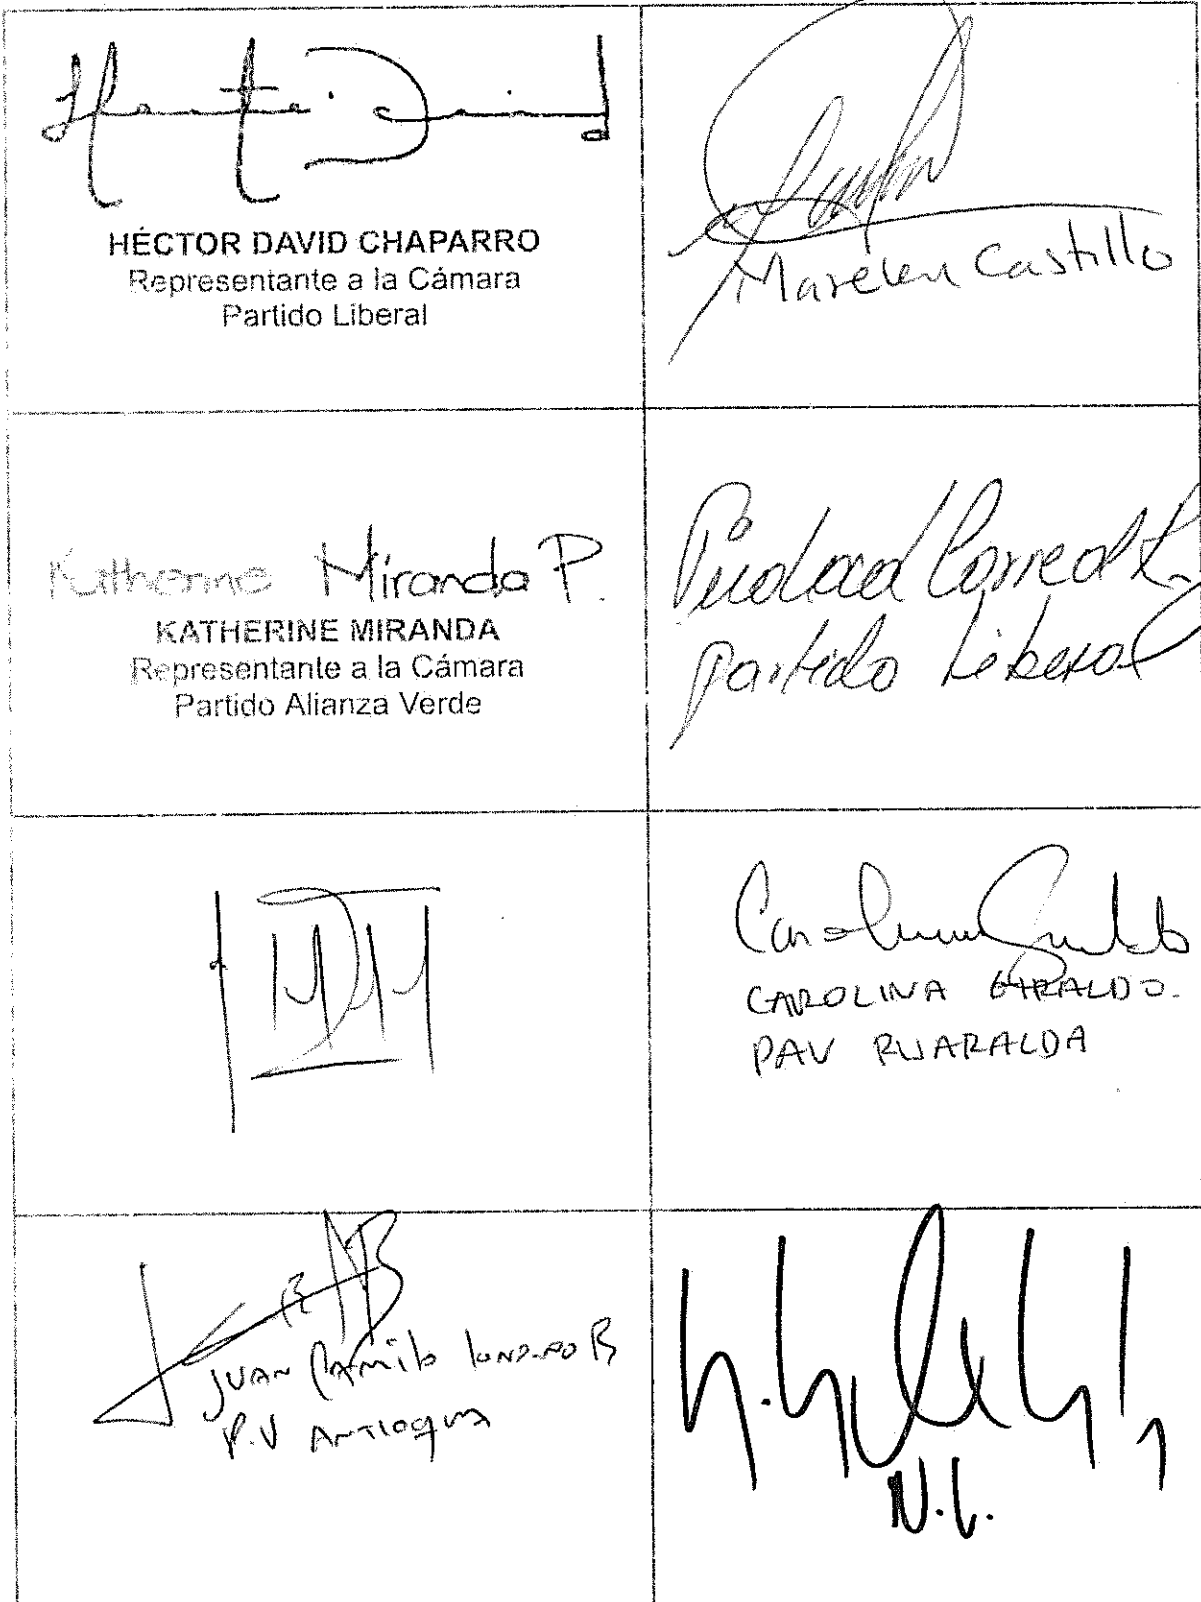 HÉCTOR DAVID CHAPARRO
Representante a la Cámara
Partido Liberal
Marelen Castillo
Katherine Miranda P.
KATHERINE MIRANDA
Representante a la Cámara
Partido Alianza Verde
Piedad Correal
Partido Liberal
CAROLINA GIRALDO.
PAV RISARALDA
JUAN Camilo Londoño B
P.V ANTIOQUIA
N.L.